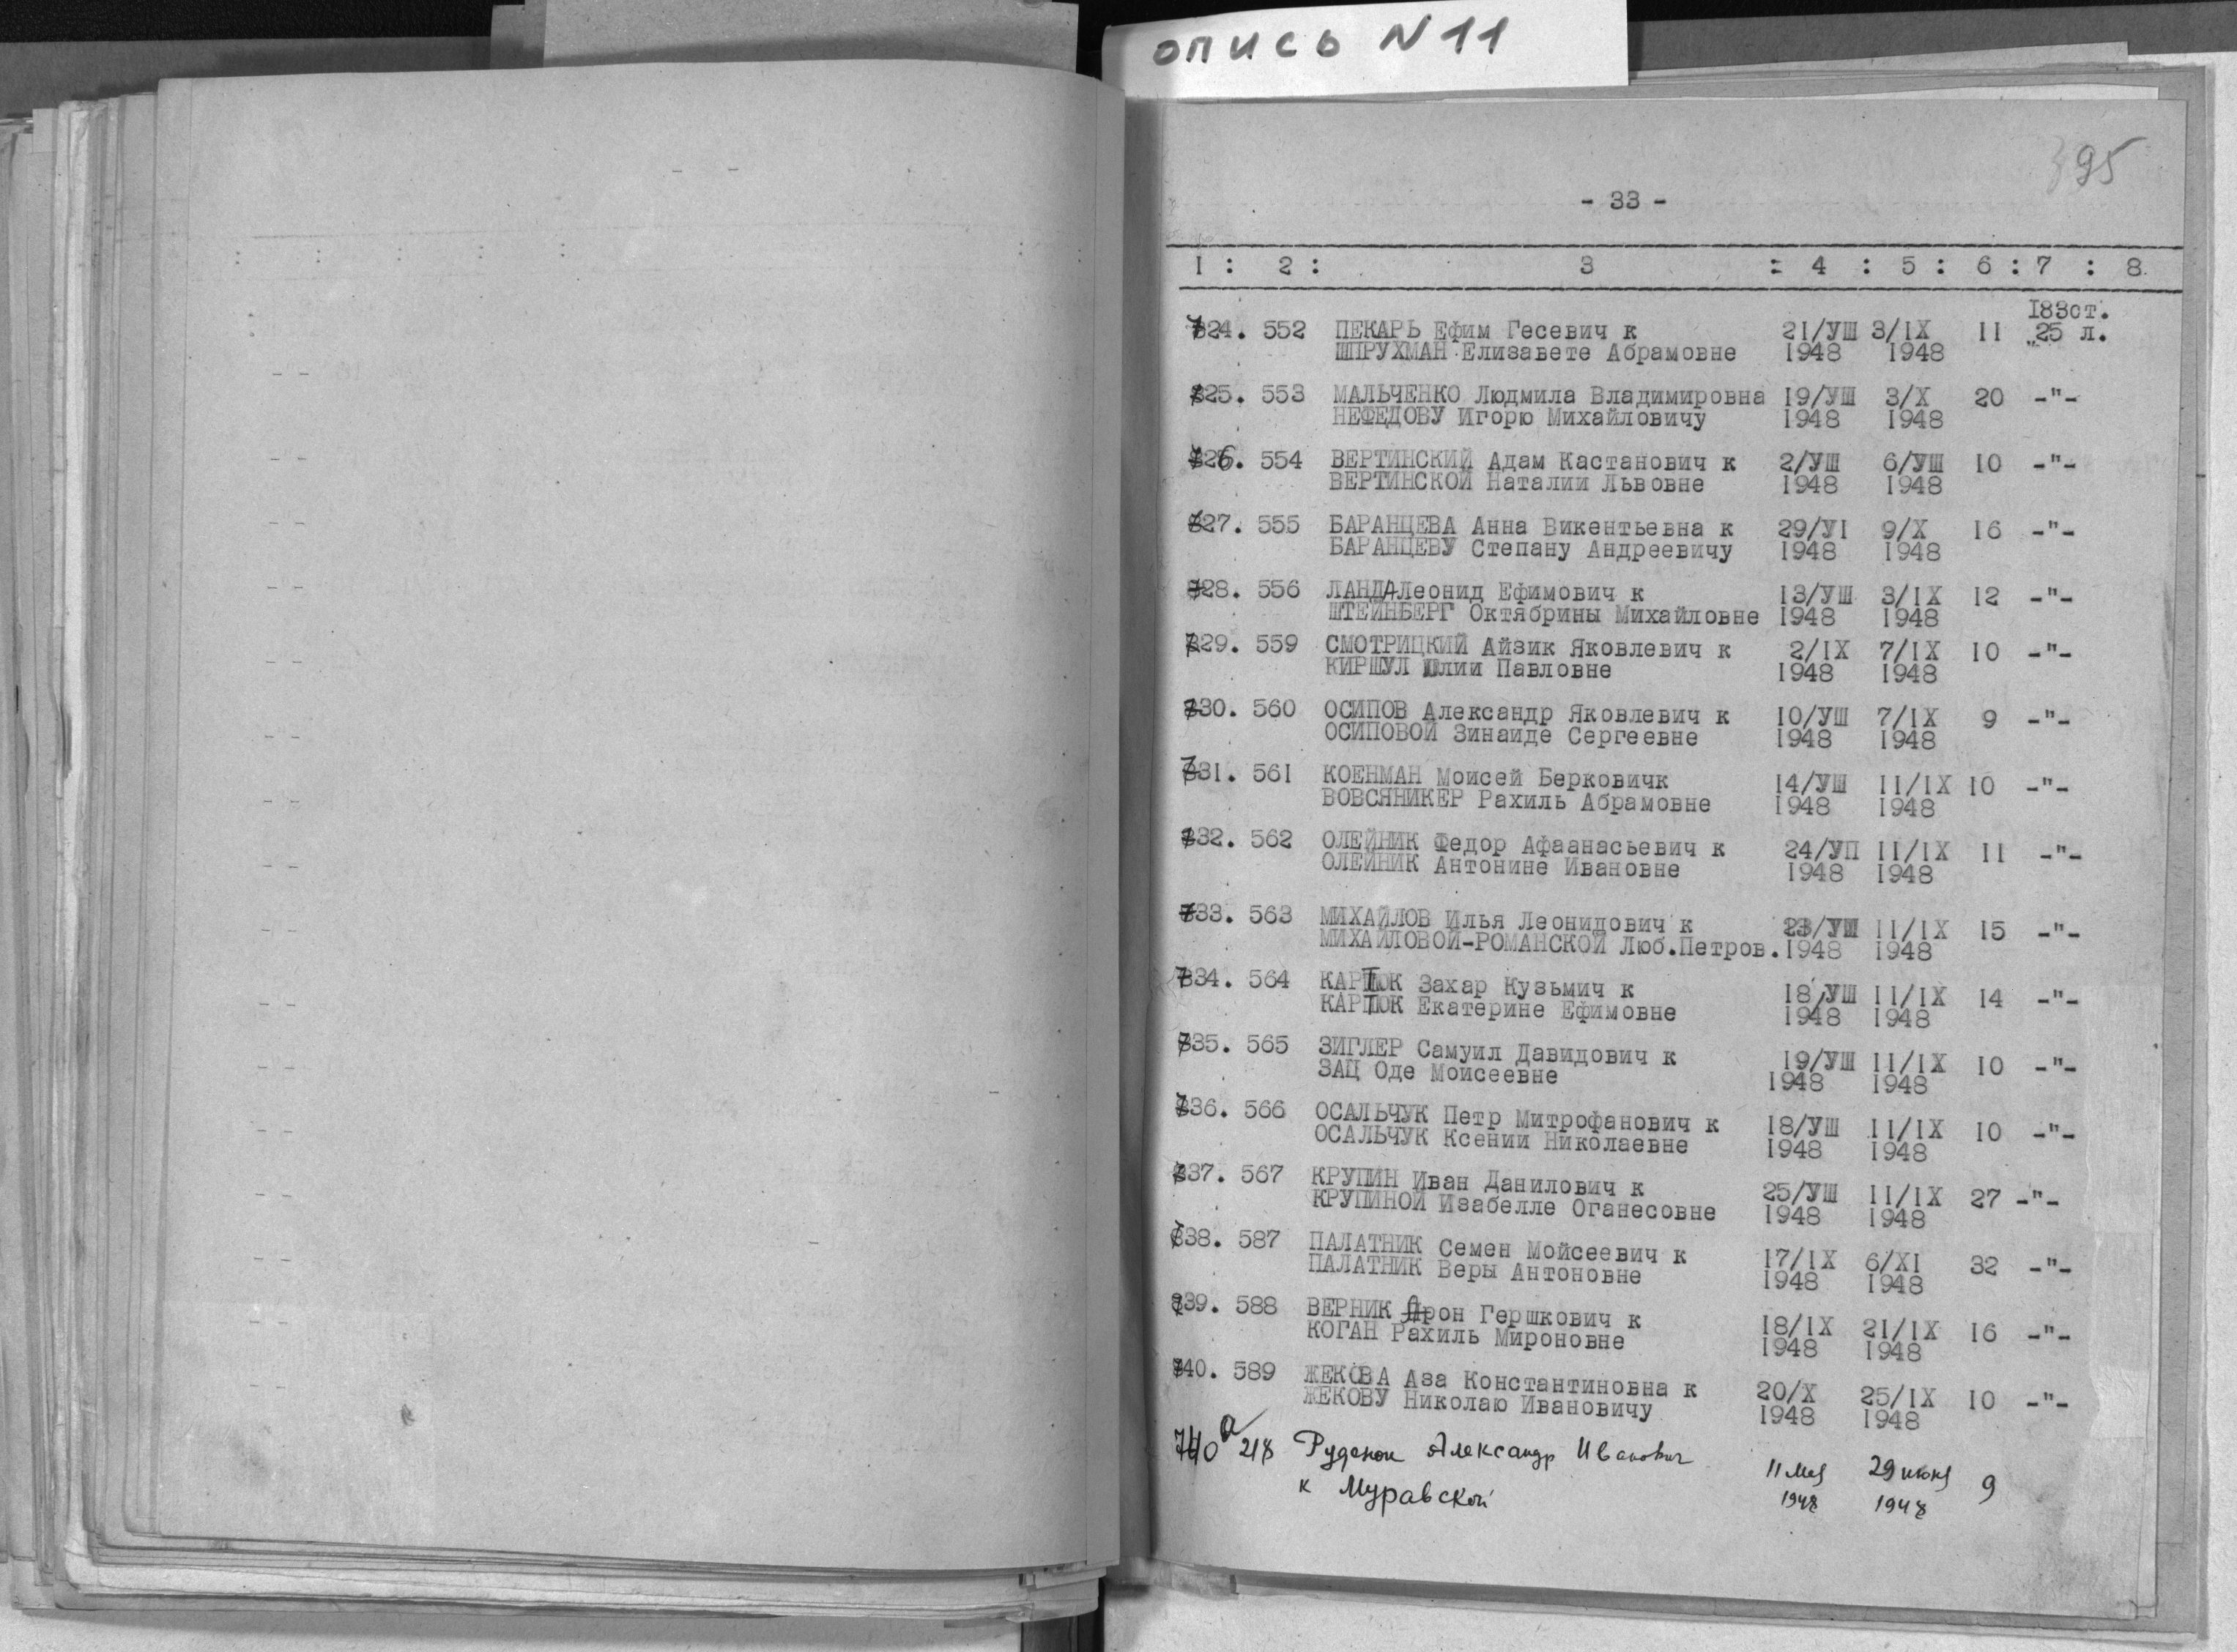 опись N 11
395
- 33 -
1 : 2 : 3 : 4 : 5 : 6 : 7 : 8
183ст.
724. 552 ПЕКАРЬ Ефим Гесевич к 21/УШ 3/IX 11 25 л.
ШПРУХМАН Елизавете Абрамовне 1948 1948
725. 553 МАЛЬЧЕНКО Людмила Владимировна 19/УШ 3/X 20 -"-
НЕФЕДОВУ Игорю Михайловичу 1948 1948
726. 554 ВЕРТИНСКИЙ Адам Кастанович к 2/УШ 6/УШ 10 -"-
ВЕРТИНСКОЙ Наталии Львовне 1948 1948
727. 555 БАРАНЦЕВА Анна Викентьевна к 29/У1 9/X 16 -"-
БАРАНЦЕВУ Степану Андреевичу 1948 1948
728. 556 ЛАНДА Леонид Ефимович к 13/УШ 3/IX 12 -"-
ШТЕЙНБЕРГ Октябрины Михайловне 1948 1948
729. 559 СМОТРИЦКИЙ Айзик Яковлевич к 2/IX 7/IX 10 -"-
КИРШУЛ Юлии Павловне 1948 1948
730. 560 ОСИПОВ Александр Яковлевич к 10/УШ 7/IX 9 -"-
ОСИПОВОЙ Зинаиде Сергеевне 1948 1948
731. 561 КОЕНМАН Моисей Берковичк 14/УШ 11/IX 10 -"-
ВОВСЯНИКЕР Рахиль Абрамовне 1948 1948
732. 562 ОЛЕЙНИК Федор Афаанасьевич к 24/УП 11/IX 11 -"-
ОЛЕЙНИК Антонине Ивановне 1948 1948
733. 563 МИХАЙЛОВ Илья Леонидович к 23/УШ 11/IX 15 -"-
МИХАЙЛОВОЙ-РОМАНСКОЙ Люб.Петров. 1948 1948
734. 564 КАРПЮК Захар Кузьмич к 18/УШ 11/IX 14 -"-
КАРПЮК Екатерине Ефимовне 1948 1948
735. 565 ЗИГЛЕР Самуил Давидович к 19/УШ 11/IX 10 -"-
ЗАЦ Оде Моисеевне 1948 1948
736. 566 ОСАЛЬЧУК Петр Митрофанович к 18/УШ 11/IX 10 -"-
ОСАЛЬЧУК Ксении Николаевне 1948 1948
737. 567 КРУПИН Иван Данилович к 25/УШ 11/IX 27 -"-
КРУПИНОЙ Изабелле Оганесовне 1948 1948
738. 587 ПАЛАТНИК Семен Мойсеевич к 17/IX 6/XI 32 -"-
ПАЛАТНИК Веры Антоновне 1948 1948
739. 588 ВЕРНИК Арон Гершкович к 18/IX 21/IX 16 -"-
КОГАН Рахиль Мироновне 1948 1948
740. 589 ЖЕКОВА Аза Константиновна к 20/X 25/IX 10 -"-
ЖЕКОВУ Николаю Ивановичу 1948 1948
740 а 218 Руденок Александр Иванович 11 мая 29 июня 9
к Муравской 1948 1948